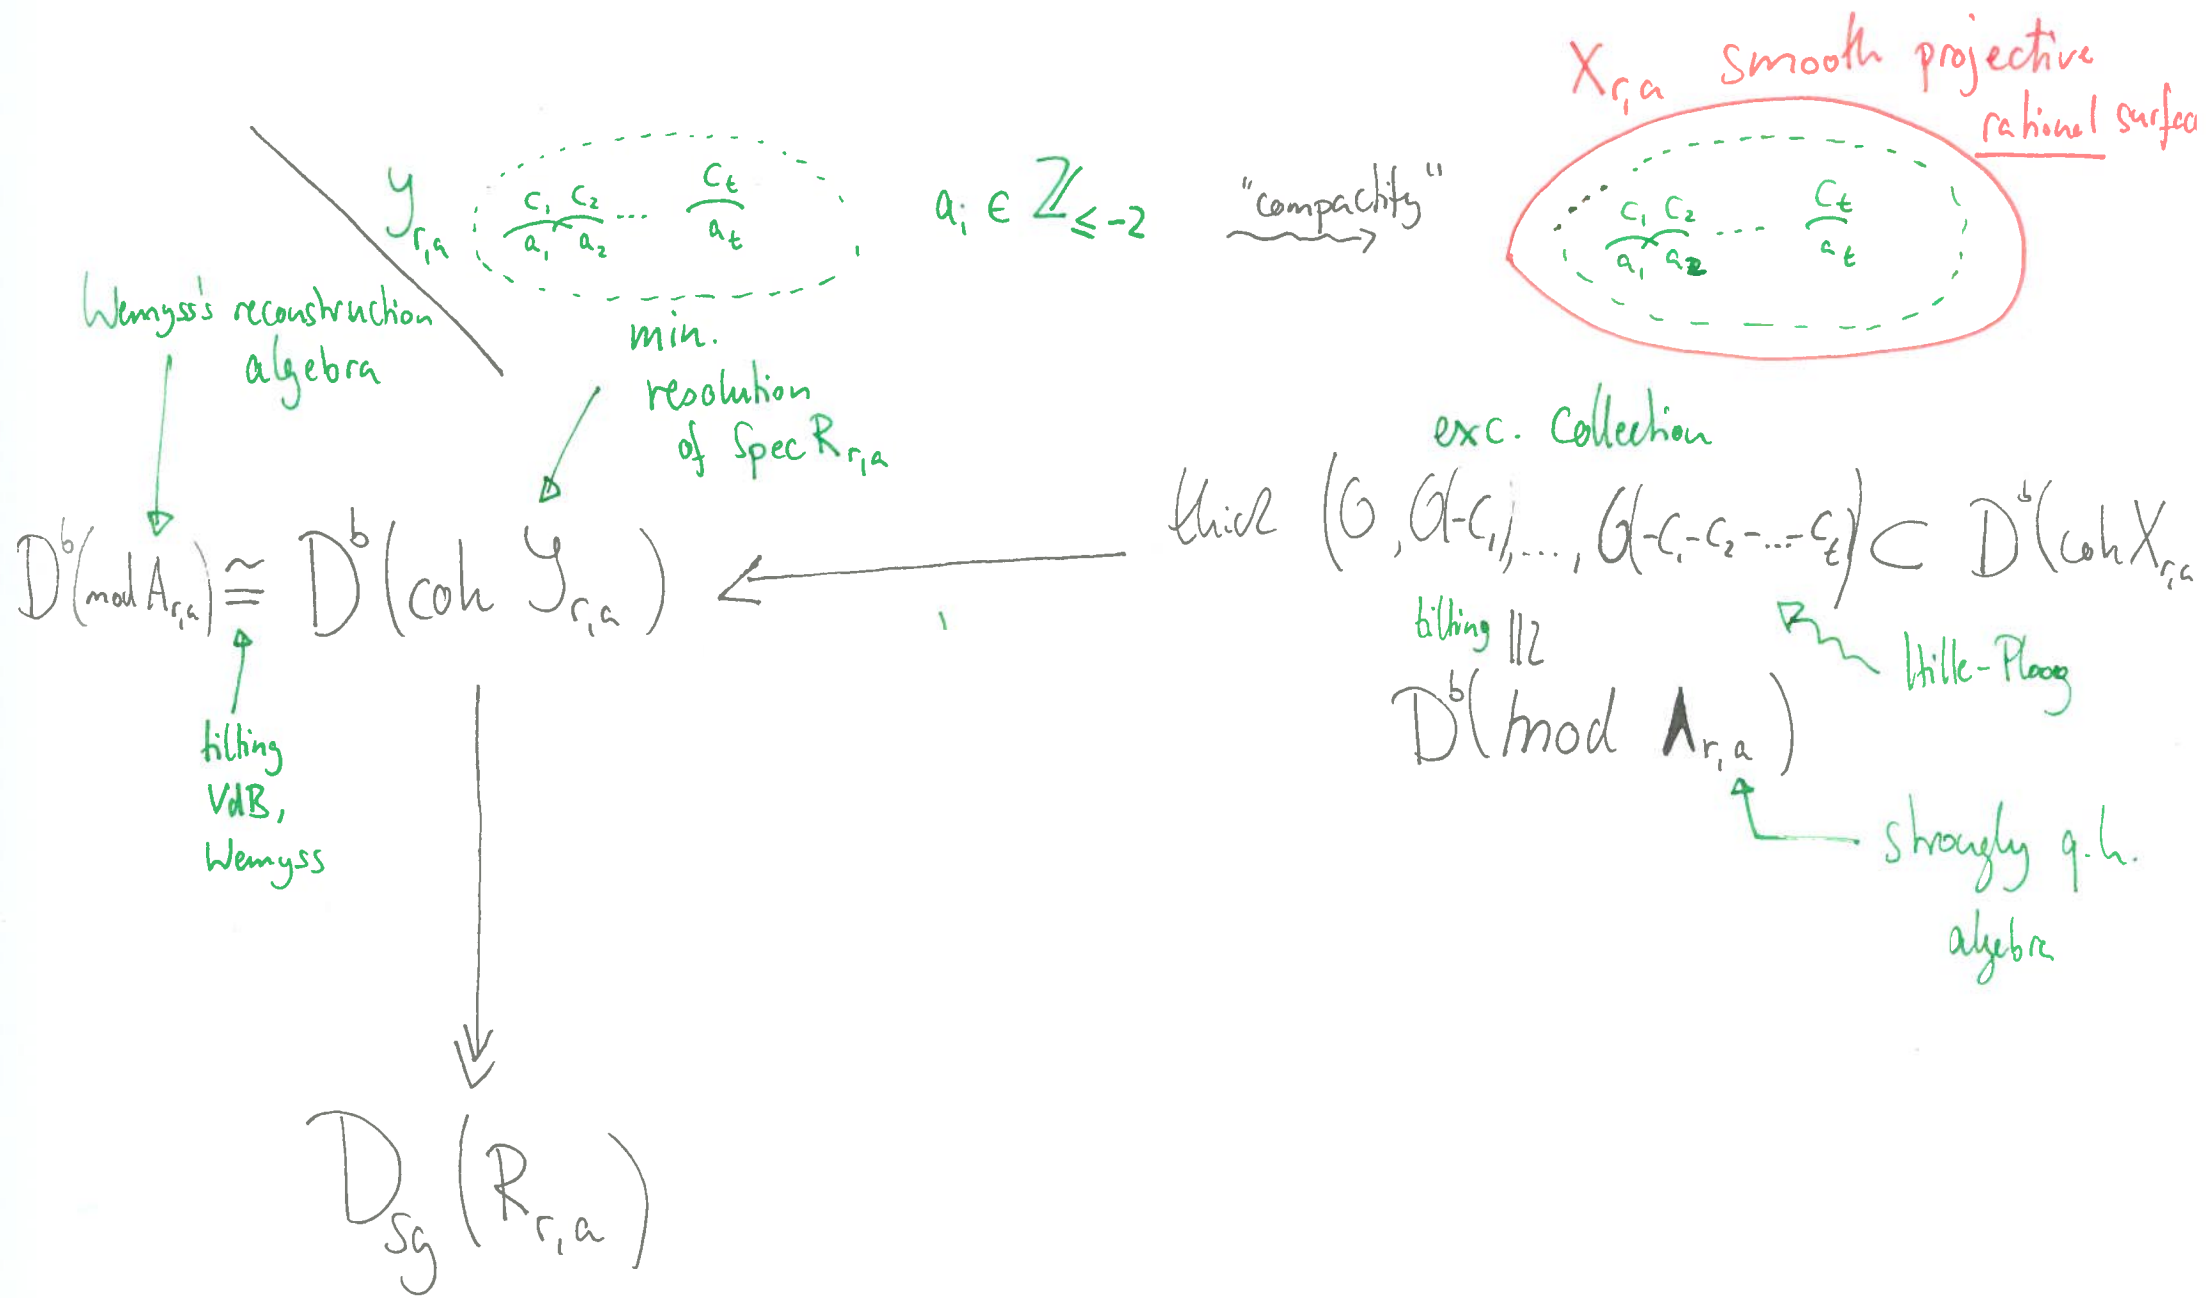 X_{r,a} smooth projective
rational surfac
Y_{r,a} C_1 C_2 ... C_t
a_1 a_2 a_t
a_i ∈ ℤ_{≤-2}
"compactify"
C_1 C_2 .... C_t
a_1 a_2 a_t
Wemyss's reconstruction
algebra
min.
resolution
of Spec R_{r,a}
exc. Collection
thick (O, O(-C_1), ..., O(-C_1-C_2-...-C_t)) ⊂ D^b(coh X_{r,a}
D^b(mod A_{r,a}) ≅ D^b(coh Y_{r,a})
tilting
Hille-Ploog
D^b(mod Λ_{r,a})
tilting
VdB,
Wemyss
strongly q.h.
algebra
D_{sg}(R_{r,a})